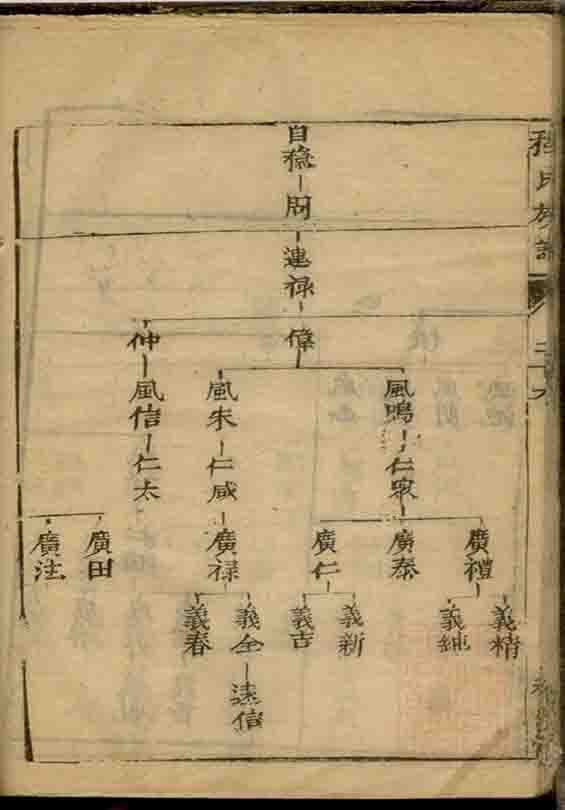 自穩
周
連禄
偉
仲
風鳴
風朱
風信
仁泉
仁咸
仁太
廣禮
廣泰
廣仁
廣禄
廣田
廣注
義精
義純
義新
義吉
義全
義春
遠信
氏族譜